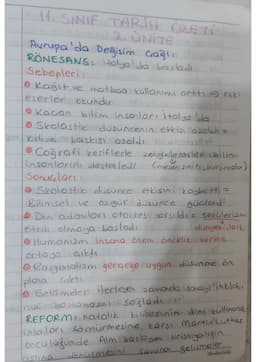 11. SINIF TARİH ÖZETİ
2. ÜNİTE
Avrupa'da Değişim Çağı:
RÖNESANS: İtalya'da başladı.
Sebepleri:
Kağıt ve matbaa kullanımı arttı → eski
eserler okundu
Kaçan bilim insanları İtalya'da
Skolastik düşüncenin etkisi azaldı =
Kilise baskısı azaldı
Coğrafi keşiflerle zenginleşenler bilim
insanlarını destekledi
Sonuçları:
Skolastik düşünce etkisini kaybetti =
Bilimsel ve özgür düşünce güçlendi
Din adamları otoritesi sarsıldı = sekülerizm
etkili olmaya başladı
Hümanizm insana önem öncelik verme
ortaya çıktı
Rasyonalizm gerçeğe uygun düşünme ön
plana çıktı
Gelişmeler ilerleyen zamanda sanayi inkılabı
nın sağladı
REFORM: Katolik kilisesinin dini kullanarak
insanları sömürmesine karşı Martin Luther
öncülüğünde Alm. başlayan hristiyanlığın
gelişmeler